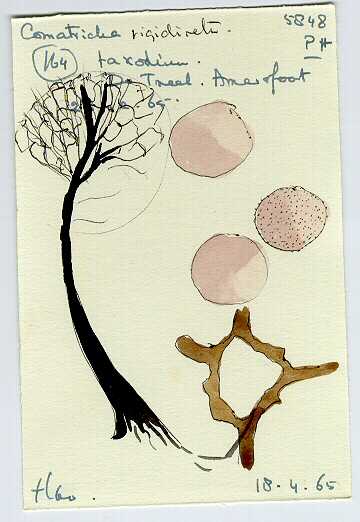 Comatricha rigidireta. 5848
164 taxodium. PH
De Treek. Amersfoort
65.
H60.
18.4.65